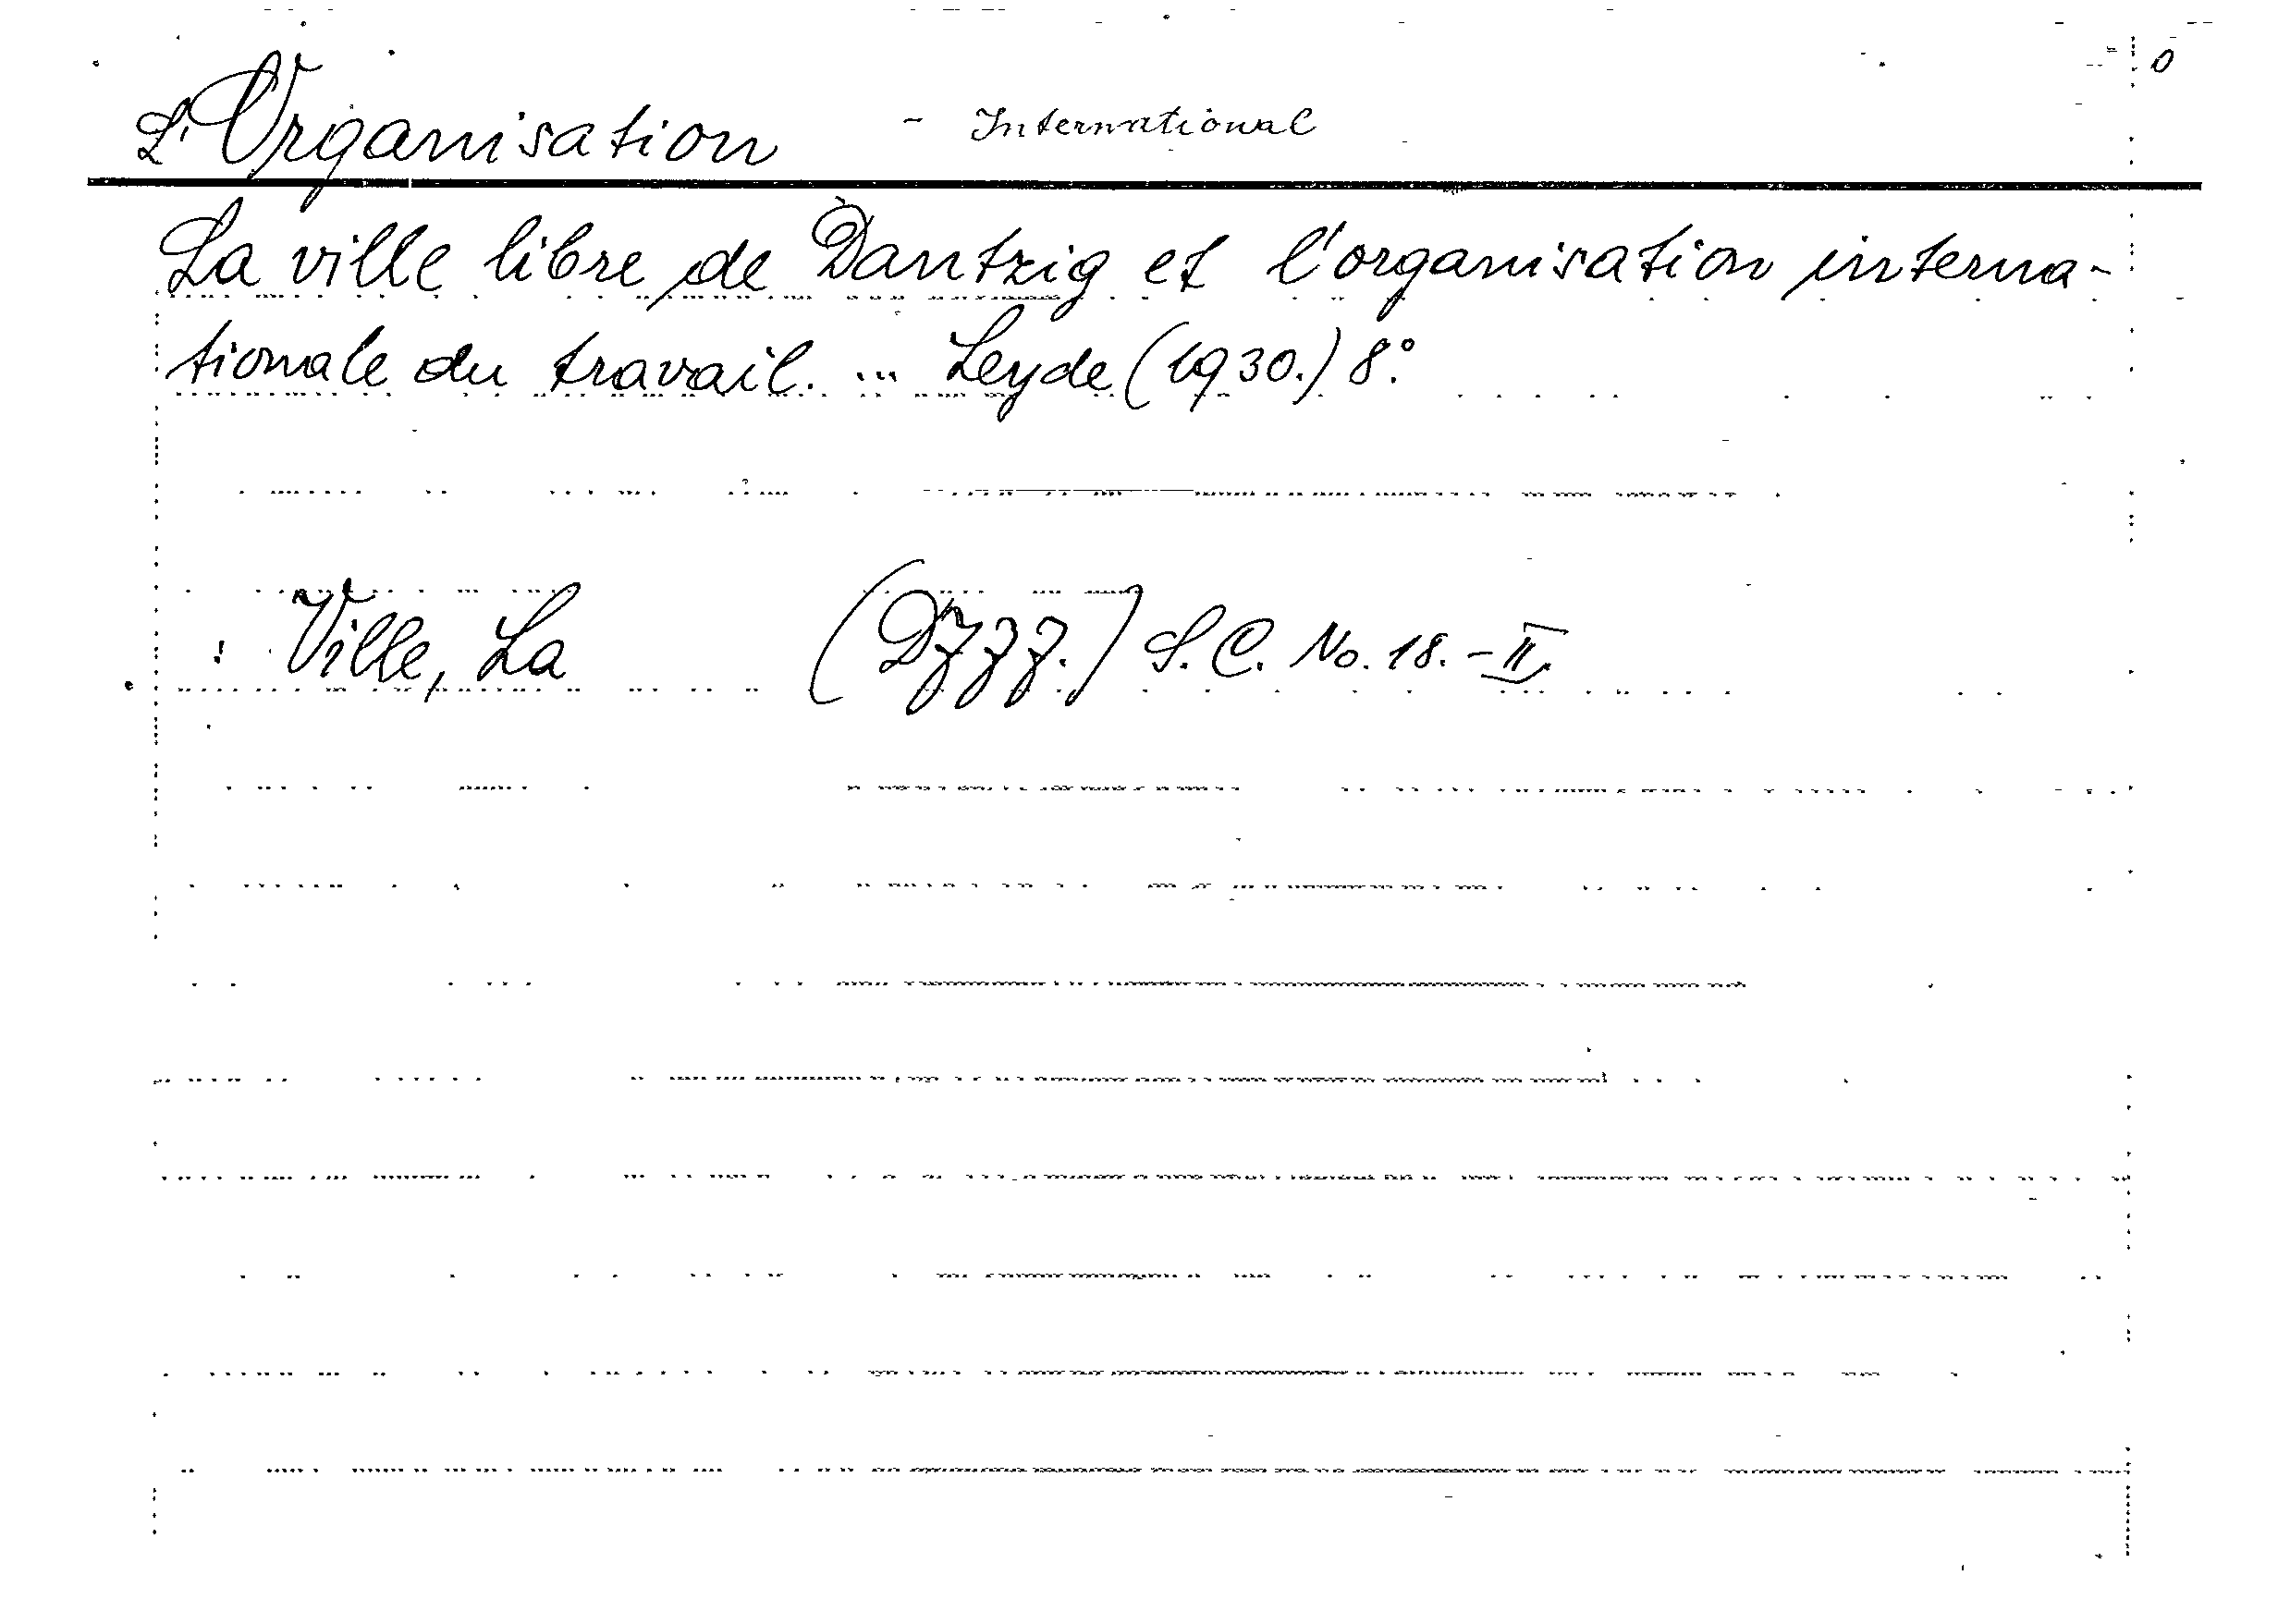 L'Organisation - International O
La ville libre de Dantzig et l'organisation interna-
tionale du travail. ... Leyde (1930.) 8°.
: Ville, La (Dzzz.) S. C. No. 18. - II.